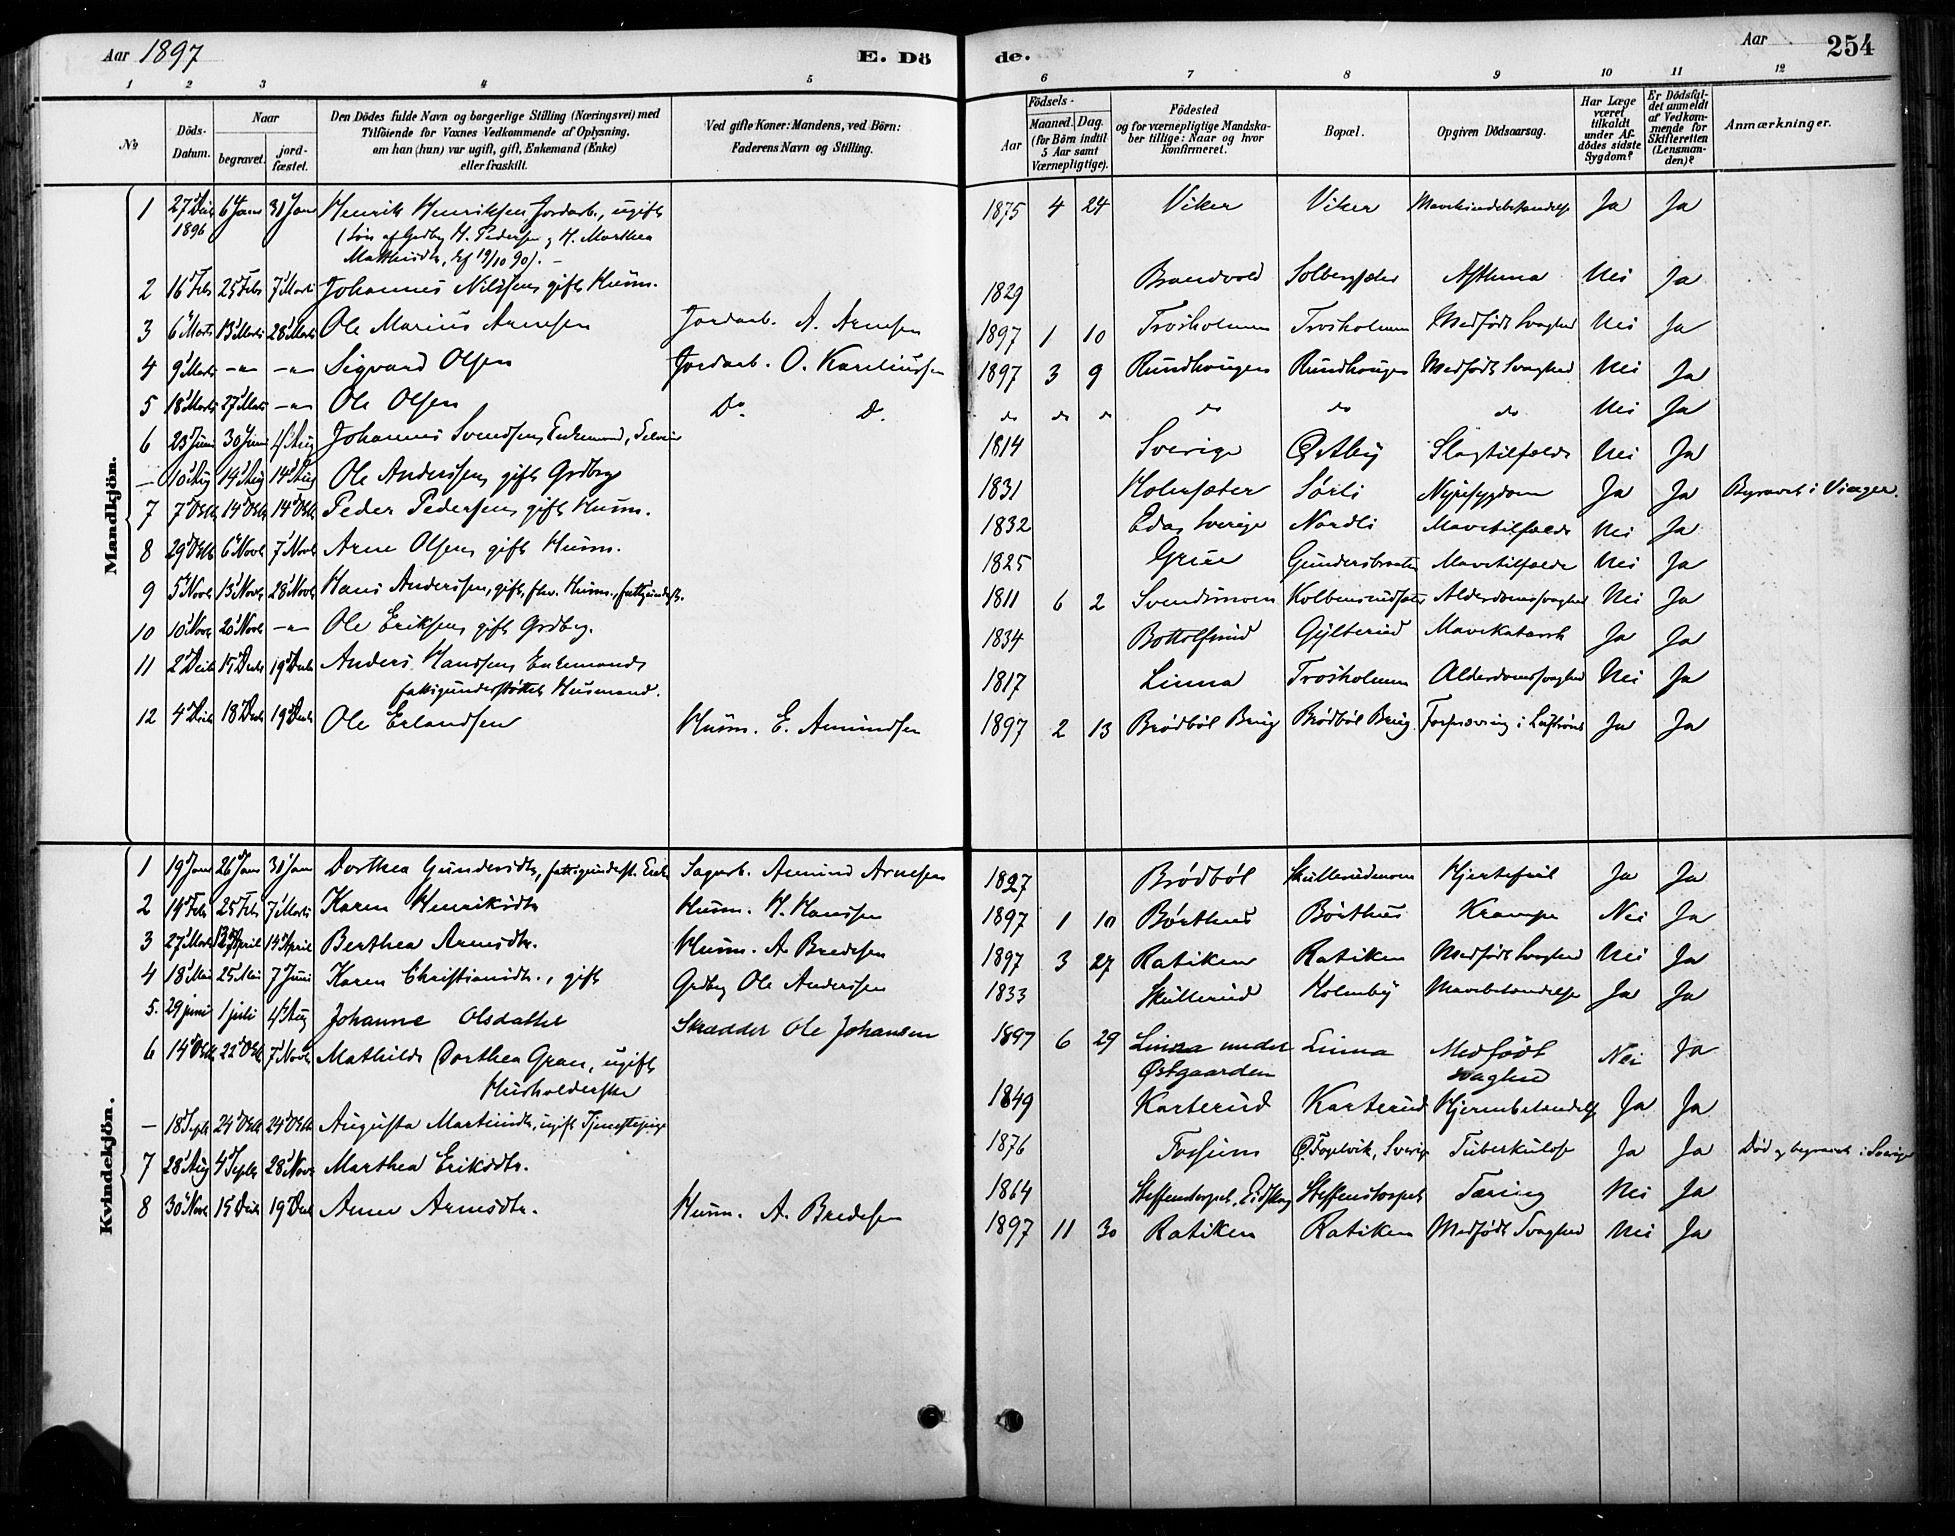 Aar 1897
E. Dö
de.
Aar
254
1 2 3 4 5 6 7 8 9 10 11 12
No
Döds-Datum.
Naar
begravet.
jord-fæstet.
Den Dödes fulde Navn og borgerlige Stilling (Næringsvei) med
Tilföiende for Voxnes Vedkommende af Oplysning,
om han (hun) var ugift, gift, Enkemand (Enke)
eller fraskilt.
Ved gifte Koner: Mandens, ved Börn:
Faderens Navn og Stilling.
Födsels-
Aar
Maaned. Dag.
(for Börn indtil
5 Aar samt
Værnepligtige).
Födested
og for værnepligtige Mandska-
ber tillige: Naar og hvor
konfirmeret.
Bopæl.
Opgiven Dödsaarsag.
Har Læge
været
tilkaldt
under Af-
dödes sidste
Sygdom?
Er Dödsfal-
det anmeldt
af Vedkom-
mende for
Skifteretten
(Lensman-
den)?
Anmærkninger.
Mandkjön.
1 27 Decb 1896 6 Janr 31 Janr Henrik Henriksen Jordarb., ugift 1875 4 24 Viker Viker Ja Ja
(Søn af Grdbr H. Pedersen og H. Marthea
19/10 90). -
2 16 Febr 25 Febr 7 Marts Johannes Nilssen gift Husm. 1829 Brandvold Solbergsæter Asthma Nei Ja
3 6 Marts 13 Marts 28 Marts Ole Marius Arnesen Jordarb. A. Arnesen 1897 1 10 Trosholmen Trosholmen Medfödt Svaghed Nei Ja
4 9 Marts -"- -"- Sigvard Olsen Jordarb. O. Kareliussen 1897 3 9 Rundhaugen Rundhaugen Medfödt Svaghed Nei Ja
5 18 Marts 27 Marts -"- Ole Olsen Do. D. do do do do do do Nei Ja
6 23 Juni 30 Juni 4 Aug Johannes Svendsen, Enkemand, 1814 Sverige Østby Slagtilfælde Nei Ja
- 10 Aug 14 Aug 14 Aug Ole Anderssen gift Grdbr 1831 Holmsæter Sørli Nyresygdom Ja Ja Begravet i Vinger.
7 7 Oktb 14 Oktb 14 Oktb Peder Pedersen gift Husm. 1832 Eda, Sverige Nordli Mavetilfælde Nei Ja
8 29 Oktb 6 Novb 7 Novb Arne Olsen gift Husm. 1825 Grue Gundersbraaten Mavetilfælde Nei Ja
9 5 Novb 13 Novb 28 Novb Hans Anderssen, gift, fhv. Husm., fattigunderst. 1811 6 2 Svendsmoen Kolbensrudsæter Alderdomssvaghed Nei Ja
10 10 Novb 20 Novb -"- Ole Eriksen gift Grdbr. 1834 Bottolfsrud Gylterud Mavekatarrh Ja Ja
11 2 Decb 15 Decb 19 Decb Anders Hanssen Enkemand 1817 Linna Trosholmen Alderdomssvaghed Nei Ja
fattigunderstöttet Husmand.
12 4 Decb 18 Decb 19 Decb Ole Erlandsen Husm. E. Amundsen 1897 2 13 Brödböl Brug Brödböl Brug. Ja Ja
Kvindekjön.
1 19 Janr 26 Janr 31 Janr Dorthea Gundersdtr, fattigunderst. Enke Sagarb. Amund Arnesen 1827 Brödböl Skullerudmoen Hjertefeil Ja Ja
2 14 Febr 25 Febr 7 Marts Karen Henriksdtr Husm. H. Hanssen 1897 1 10 Börthus Börthus Krampe Nei Ja
3 27 Marts April 14 April Berthea Arnesdtr. Husm. A. Bredesen 1897 3 27 Ratiken Ratiken Medfödt Svaghed Nei Ja
4 18 Mai 25 Mai 7 Juni Karen Christiansdtr., gift Grdbr Ole Anderssen 1833 Skullerud Holmby Mavebetændelse Ja Ja
5. 29 juni 1 juli 4 Aug Johanne Olsdatter Skrædder Ole Johansen 1897 6 29 Linna under Linna Medfödt Nei Ja
Østgaarden svaghed
6 14 Oktb 22 Oktb 7 Novb Mathilde Dorthea Gran, ugift 1849 Karterud Karterud Hjernebetændelse Ja Ja
Husholderske
- 18 Septb 24 Oktb 24 Oktb Augusta Martinsdtr, ugift Tjenestepige 1876 Fossum Ö. Fogelvik, Sverige Tuberkulose Ja Ja Död og begravet i Sverige
7 28 Aug 4 Septb 28 Novb Marthea Eriksdtr. 1864 Steffenstorpet, Eidskog Steffenstorpet Tæring Nei Ja
8 30 Novb 15 Decb 19 Decb Anne Arnesdtr. Husm. A. Bredesen 1897 11 30 Ratiken Ratiken Medfödt Svaghed Nei Ja